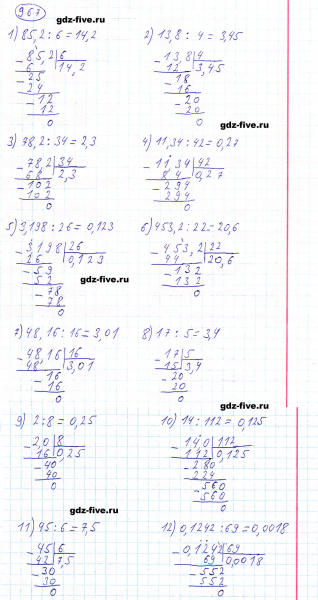 967
gdz-five.ru
1) 85,2 : 6 = 14,2
2) 13,8 : 4 = 3,45
gdz-five.ru
85,2 | 6
6 | 14,2
25
24
12
12
0
13,8 | 4
12 | 3,45
18
16
20
20
0
gdz-five.ru
3) 78,2 : 34 = 2,3
4) 11,34 : 42 = 0,27
78,2 | 34
68 | 2,3
102
102
0
11,34 | 42
84 | 0,27
294
294
0
5) 3,198 : 26 = 0,123
6) 453,2 : 22 = 20,6
3,198 | 26
26 | 0,123
59
52
78
78
0
453,2 | 22
44 | 20,6
132
132
0
gdz-five.ru
7) 48,16 : 16 = 3,01
8) 17 : 5 = 3,4
48,16 | 16
48 | 3,01
16
16
0
17 | 5
15 | 3,4
20
20
0
gdz-five.ru
9) 2 : 8 = 0,25
10) 14 : 112 = 0,125
2,0 | 8
16 | 0,25
40
40
0
14,0 | 112
112 | 0,125
280
224
560
560
0
gdz-five.ru
11) 45 : 6 = 7,5
12) 0,1242 : 69 = 0,0018
45 | 6
42 | 7,5
30
30
0
0,1242 | 69
69 | 0,0018
552
552
0
gdz-five.ru